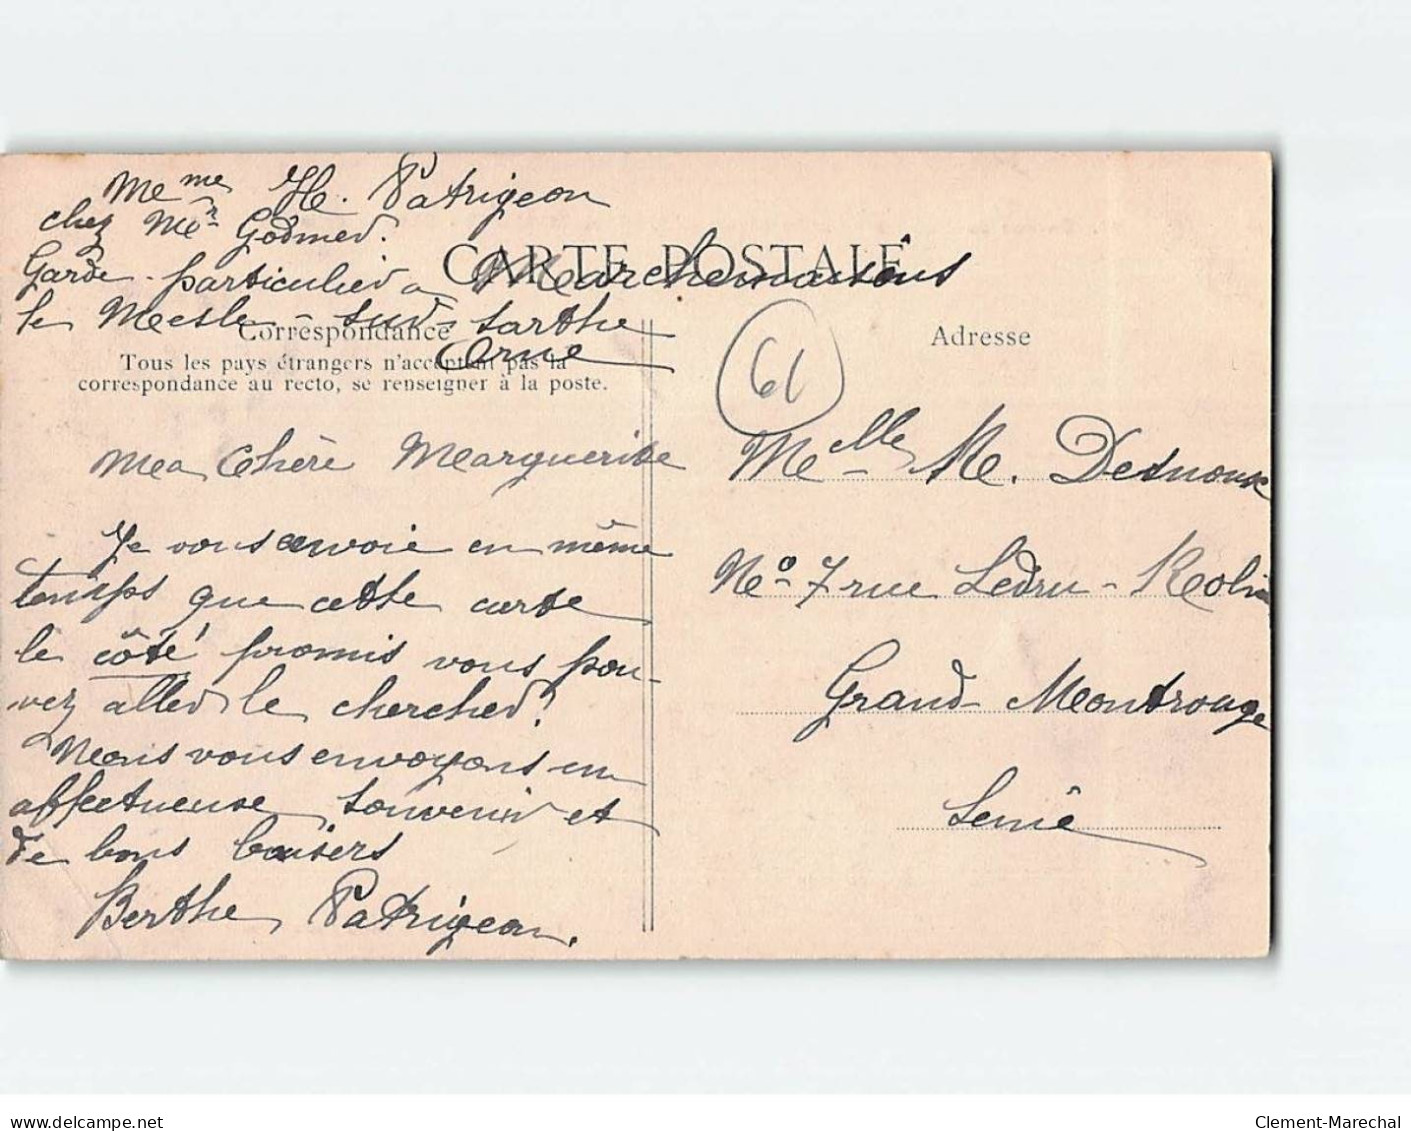 Mme H. Patrigeon
chez Mr Godmer.
Garde-particulier a Marchemaisons
le Mesle-sur-Sarthe
Orne
CARTE POSTALE
Correspondance
Tous les pays étrangers n'acceptent pas la
correspondance au recto, se renseigner à la poste.
Ma Chère Marguerite
Je vous envoie en même
temps que cette carte
le côté promis vous pou-
vez aller le chercher!
Nous vous envoyons un
affectueuse souvenir et
de bons baisers
Berthe Patrigeon.
61
Adresse
Melle M. Desnoux
No 7 rue Ledru-Rolin
Grand-Montrouge
Seine
Clement-Marechal
www.delcampe.net